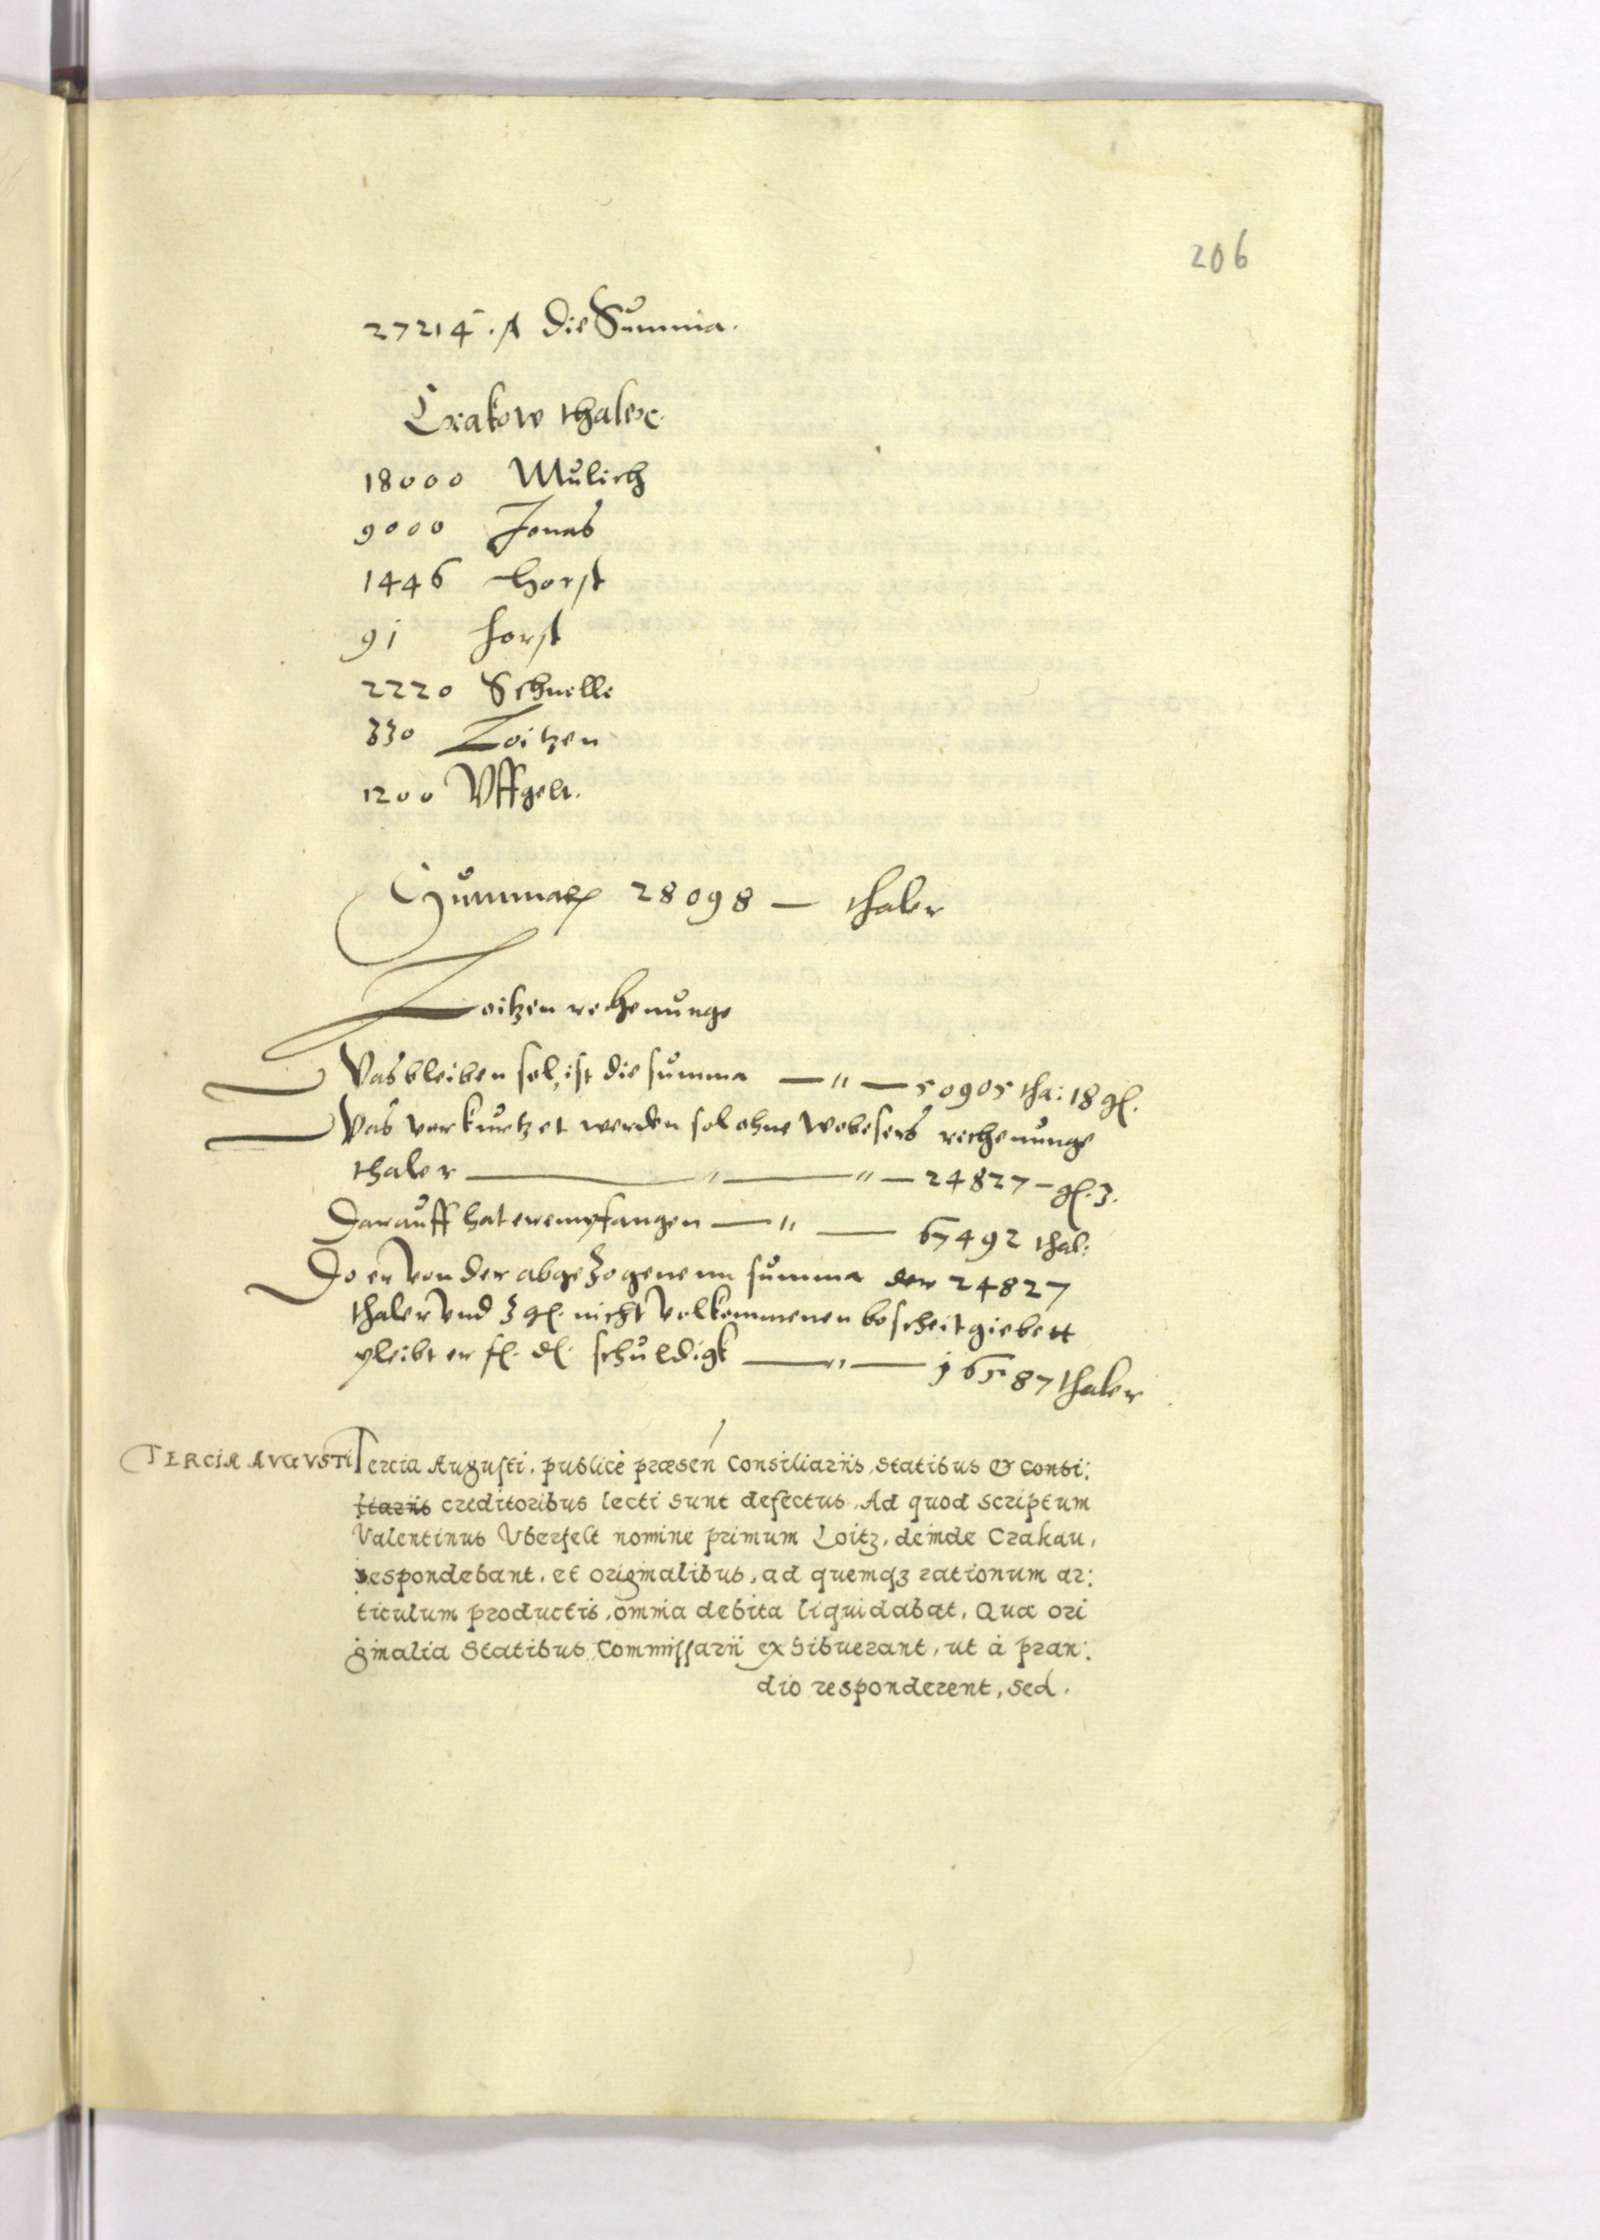 206
27214. A Die Summa.
Crakow thaler.
18000 Mulich
9000 Jonas
1446 Horst
91 horst
2220 Schnelle
330 Loitzen
1200 Vffgelt.
Summa 28098 — thaler
Loitzen rechenunge
Was bleiben sol, ist die summa — " — 50905 tha: 18 gl.
Was verkurtzet werden sol ohne Wobesers rechenunge
thaler — " — " — 24827 — gl. 3.
Darauff hat er empfangen — " — 67492 thal:
Do er von der abgezogenenn summa der 24827
thaler vnd 3 gl. nicht volkommenen bescheit giebett
pleibt er f. d. schuldigk — " — 16587 thaler
TERCIA AVGVSTI Tercia Augusti, publicè præsen Consiliariis, Statibus & consi:
liariis creditoribus lecti sunt defectus. Ad quod scriptum
Valentinus Vberfelt nomine primum Loitz, deinde Crakau,
respondebant, et originalibus, ad quemqz rationum ar:
ticulum productis, omnia debita liquidabat, Quæ ori
ginalia Statibus Commissarii exhibuerant, ut à pran:
dio responderent, Sed.